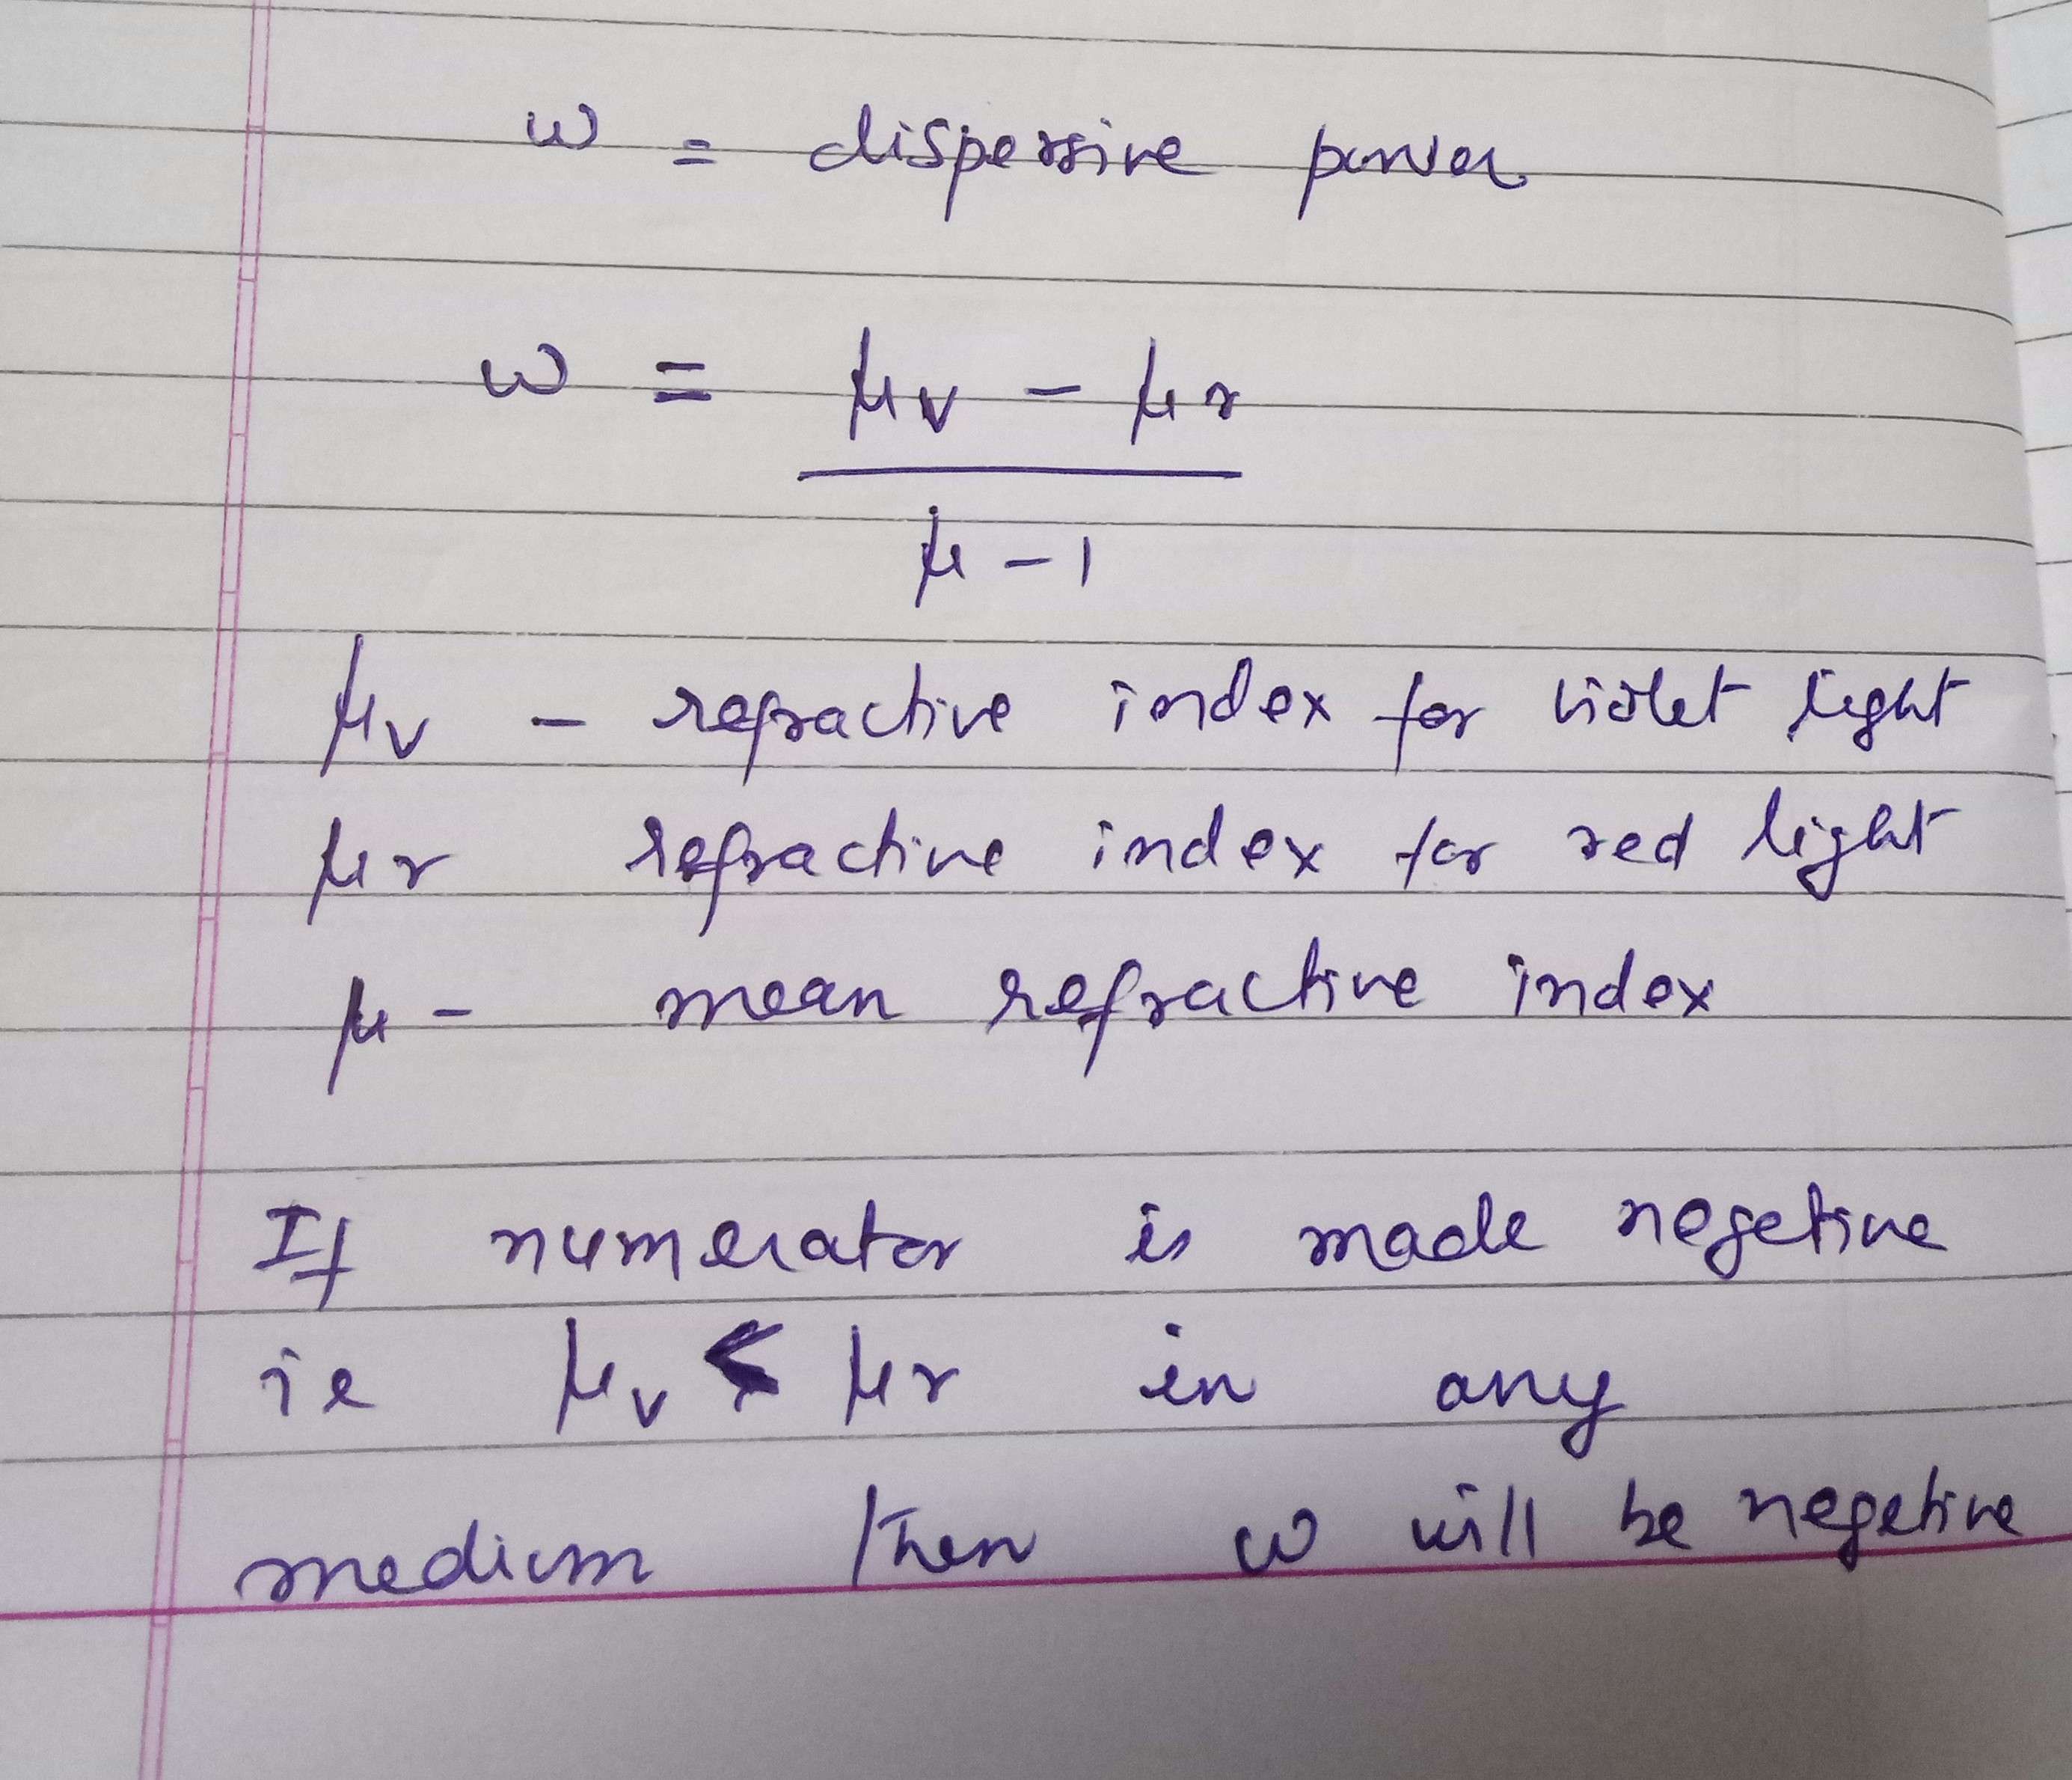 ω = dispersive power
ω = μv - μr
μ - 1
μv - refractive index for violet light
μr refractive index for red light
μ - mean refractive index
If numerator is made negetive
ie μv < μr in any
medium then ω will be negetive